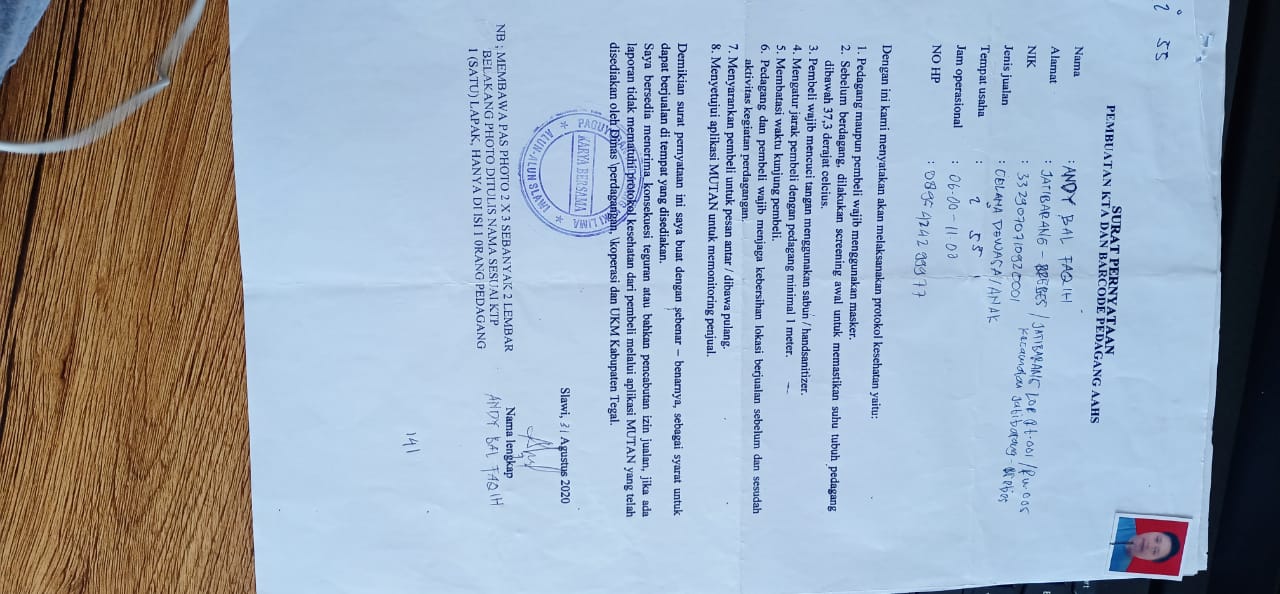 2 55
SURAT PERNYATAAN
PEMBUATAN KTA DAN BARCODE PEDAGANG AAHS
Nama : ANDY BAL FAQIH
Alamat : JATIBARANG - BREBES / JATIBARANG LOR Rt.001 / Rw.005
Kecamatan Jatibarang - Brebes
NIK : 3329070710920001
Jenis jualan : CELANA DEWASA / ANAK
Tempat usaha : 2 55
Jam operasional : 06.00 - 11.00
NO HP : 08954242 99977
Dengan ini kami menyatakan akan melaksanakan protokol kesehatan yaitu:
1. Pedagang maupun pembeli wajib menggunakan masker.
2. Sebelum berdagang, dilakukan screening awal untuk memastikan suhu tubuh pedagang
dibawah 37,3 derajat celcius.
3. Pembeli wajib mencuci tangan menggunakan sabun / handsanitizer.
4. Mengatur jarak pembeli dengan pedagang minimal 1 meter.
5. Membatasi waktu kunjung pembeli.
6. Pedagang dan pembeli wajib menjaga kebersihan lokasi berjualan sebelum dan sesudah
aktivitas kegiatan perdagangan.
7. Menyarankan pembeli untuk pesan antar / dibawa pulang.
8. Menyetujui aplikasi MUTAN untuk memonitoring penjual.
Demikian surat pernyataan ini saya buat dengan sebenar – benarnya, sebagai syarat untuk
dapat berjualan di tempat yang disediakan.
Saya bersedia menerima konsekuesi teguran atau bahkan pencabutan izin jualan, jika ada
laporan tidak mematuhi protokol kesehatan dari pembeli melalui aplikasi MUTAN yang telah
disediakan oleh Dinas perdagangan, koperasi dan UKM Kabupaten Tegal.
KARYA BERSAMA
ALUN-ALUN SLAWI
Slawi, 31 Agustus 2020
Nama lengkap
ANDY BAL FAQIH
NB : MEMBAWA PAS PHOTO 2 X 3 SEBANYAK 2 LEMBAR
BELAKANG PHOTO DITULIS NAMA SESUAI KTP
1 (SATU) LAPAK, HANYA DI ISI 1 0RANG PEDAGANG
141